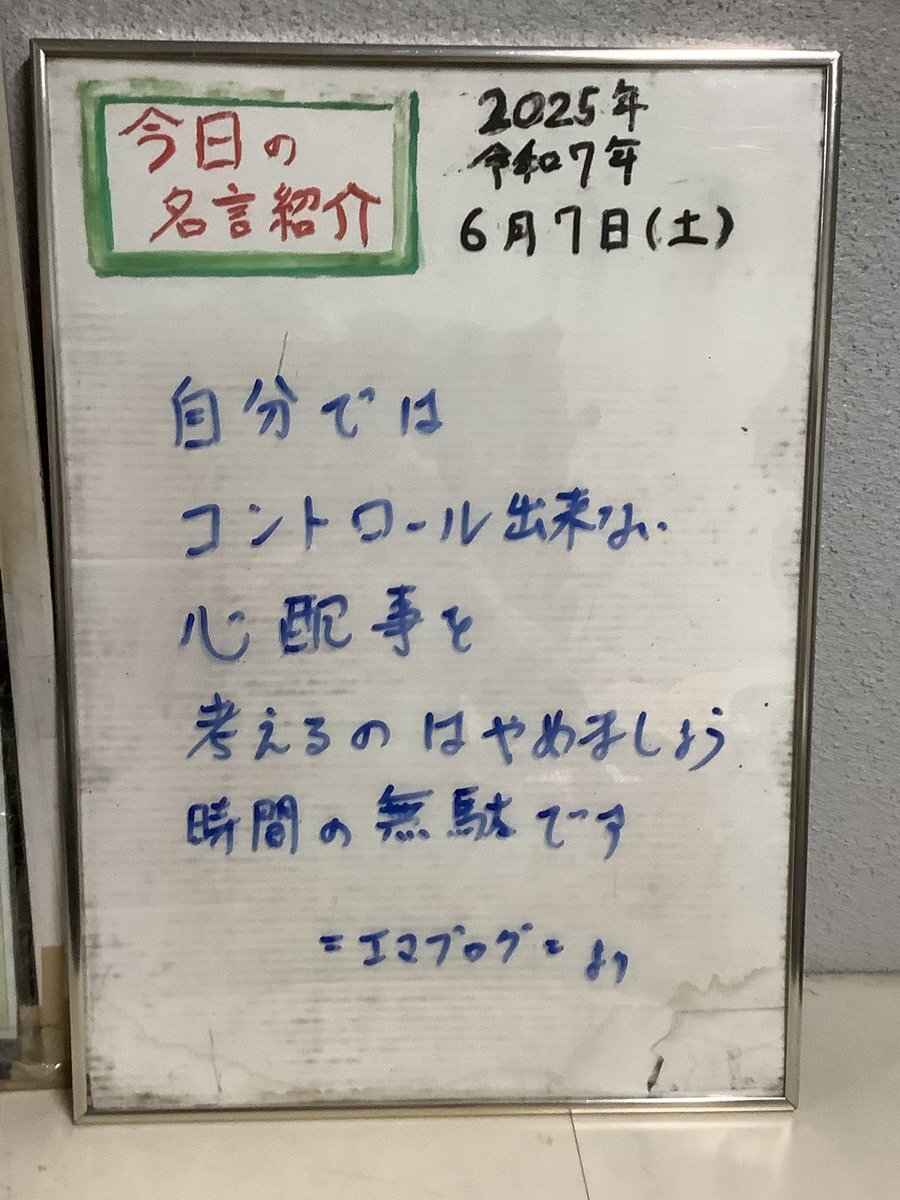 今日の
名言紹介
2025年
令和7年
6月7日(土)
自分では
コントロール出来ない
心配事を
考えるのはやめましょう
時間の無駄です
=エマブログ=より